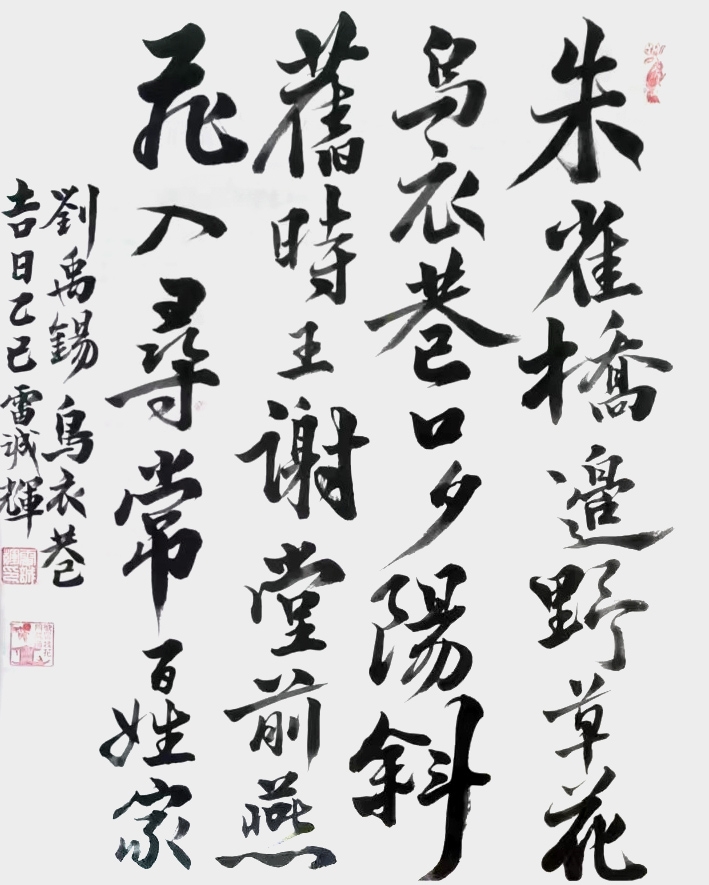 朱雀橋邉野草花
烏衣巷口夕陽斜
舊時王謝堂前燕
飛入尋常百姓家
劉禹錫烏衣巷
吉日乙巳雷誠輝